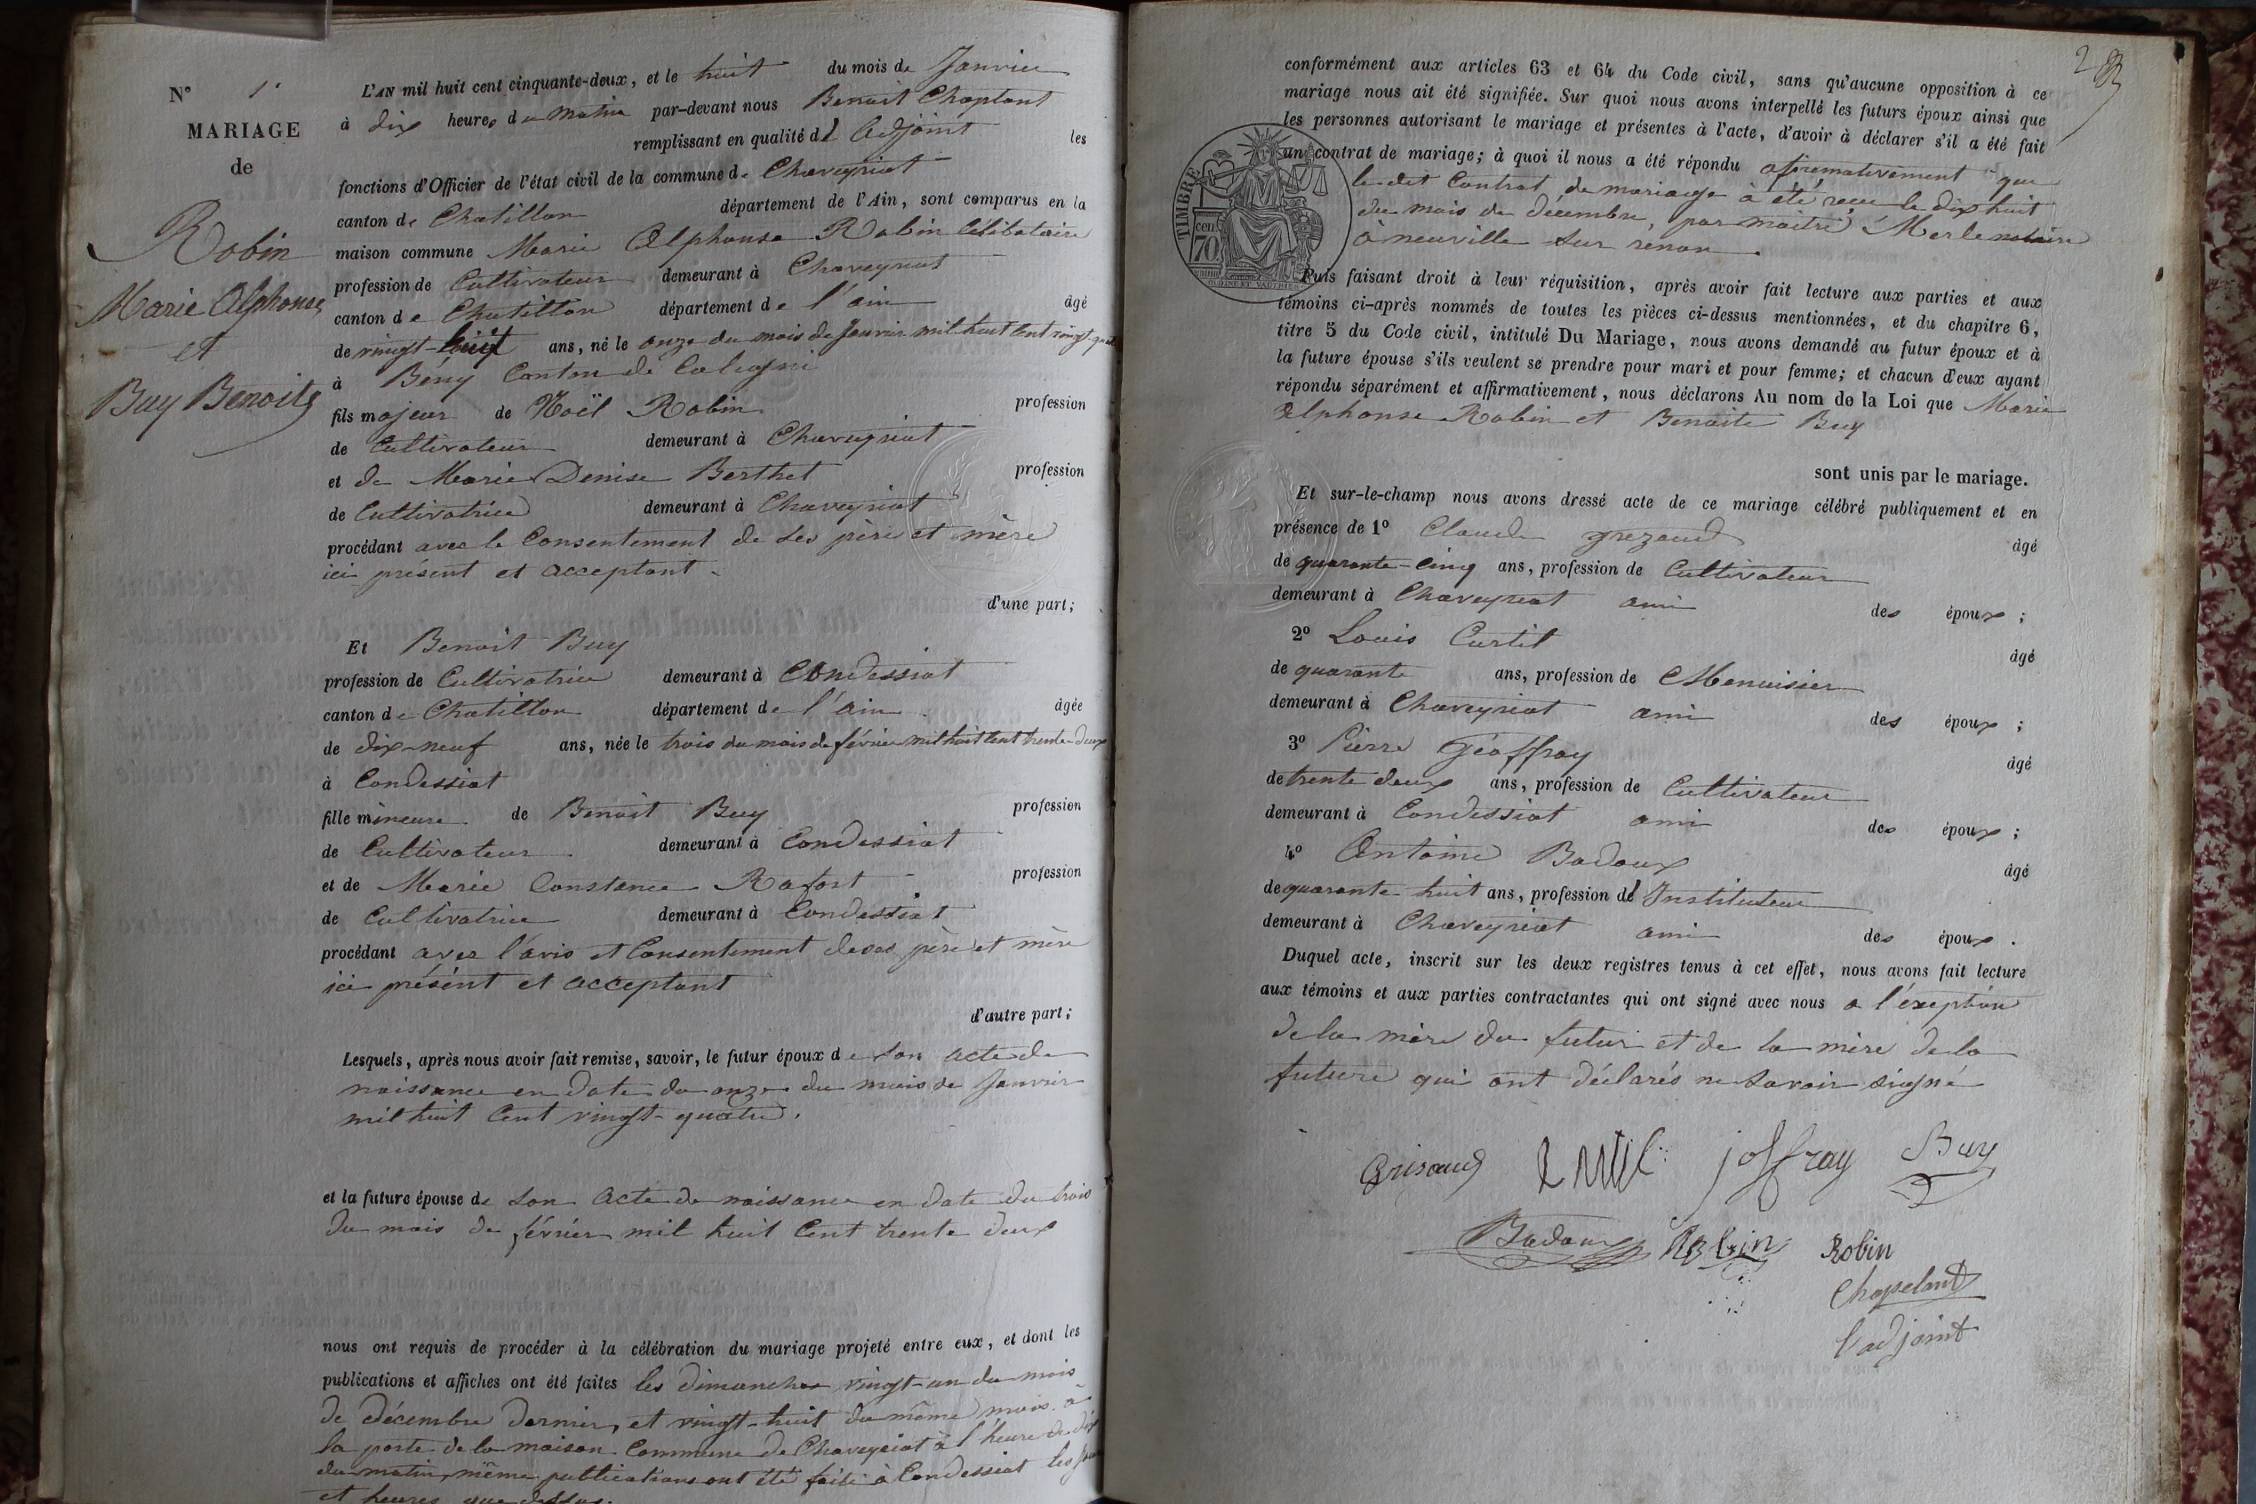 N° 1er
MARIAGE
de
Robin
Marie Alphonse
et
Buy Benoite
L'AN mil huit cent cinquante-deux, et le huit du mois de Janvier
à dix heures du matin par-devant nous Benoit Chaplant
remplissant en qualité d l'adjoint les
fonctions d'Officier de l'état civil de la commune de Chaveyriat
canton de Chatillon département de l'Ain, sont comparus en la
maison commune Marie Alphonse Robin Célibataire
profession de Cultivateur demeurant à Chaveyriat
canton de Chatillon département de l'ain âgé
de vingt-huit ans, né le onze du mois de Janvier mil huit cent vingt-quat
à Bény Canton de Coligni
fils majeur de Noël Robin profession
de Cultivateur demeurant à Chaveyriat
et de Marie Denise Berthet profession
de Cultivatrice demeurant à Chaveyriat
procédant avec le Consentement de ses père et mère
ici présent et acceptant.
d'une part;
Et Benoit Buy
profession de Cultivatrice demeurant à Condessiat
canton de Chatillon département de l'ain âgée
de dix-neuf ans, née le trois du mois de février mil huit cent trente-deux
à Condessiat
fille mineure de Benoit Buy profession
de Cultivateur demeurant à Condessiat
et de Marie Constance Rafort profession
de Cultivatrice demeurant à Condessiat
procédant avec l'avis et Consentement de ses père et mère
ici présent et acceptant
d'autre part;
Lesquels, après nous avoir fait remise, savoir, le futur époux de son acte de
naissance en date du onze du mois de Janvier
mil huit Cent vingt-quatre.
et la future épouse de son acte de naissance en date du trois
du mois de février mil huit Cent trente deux
nous ont requis de procéder à la célébration du mariage projeté entre eux, et dont les
publications et affiches ont été faites les dimanches vingt-un du mois
de décembre dernier, et vingt-huit du même mois à
la porte de la maison Commune de Chaveyriat à l'heure de dix
du matin, même publications ont été faite à Condessiat les
et heures que dessus.
2
conformément aux articles 63 et 64 du Code civil, sans qu'aucune opposition à ce
mariage nous ait été signifiée. Sur quoi nous avons interpellé les futurs époux ainsi que
les personnes autorisant le mariage et présentes à l'acte, d'avoir à déclarer s'il a été fait
un contrat de mariage; à quoi il nous a été répondu afirmativement que
le dit Contrat de mariage à été recu le dix huit
du mois de décembre, par maitre Merle notaire
à neuville sur renon.
TIMBRE
70 cen
Puis faisant droit à leur réquisition, après avoir fait lecture aux parties et aux
témoins ci-après nommés de toutes les pièces ci-dessus mentionnées, et du chapitre 6,
titre 5 du Code civil, intitulé Du Mariage, nous avons demandé au futur époux et à
la future épouse s'ils veulent se prendre pour mari et pour femme; et chacun d'eux ayant
répondu séparément et affirmativement, nous déclarons Au nom de la Loi que Marie
Alphonse Robin et Benoite Buy
sont unis par le mariage.
Et sur-le-champ nous avons dressé acte de ce mariage célébré publiquement et en
présence de 1° Claude grezaud âgé
de quarante-cinq ans, profession de Cultivateur
demeurant à Chaveyriat ami des époux;
2° Louis Curtil âgé
de quarante ans, profession de Menuisier
demeurant à Chaveyriat ami des époux;
3° Pierre Géoffray âgé
de trente deux ans, profession de Cultivateur
demeurant à Condessiat ami des époux;
4° Antoine Badoux âgé
de quarante-huit ans, profession d Instituteur
demeurant à Chaveyriat ami des époux.
Duquel acte, inscrit sur les deux registres tenus à cet effet, nous avons fait lecture
aux témoins et aux parties contractantes qui ont signé avec nous a l'éxeption
de la mère du futur et de la mère de la
future qui ont déclarés ne savoir signé
Grisaud Curtil joffray Buy
Badoux Robin Robin
Chapelant
l'adjoint